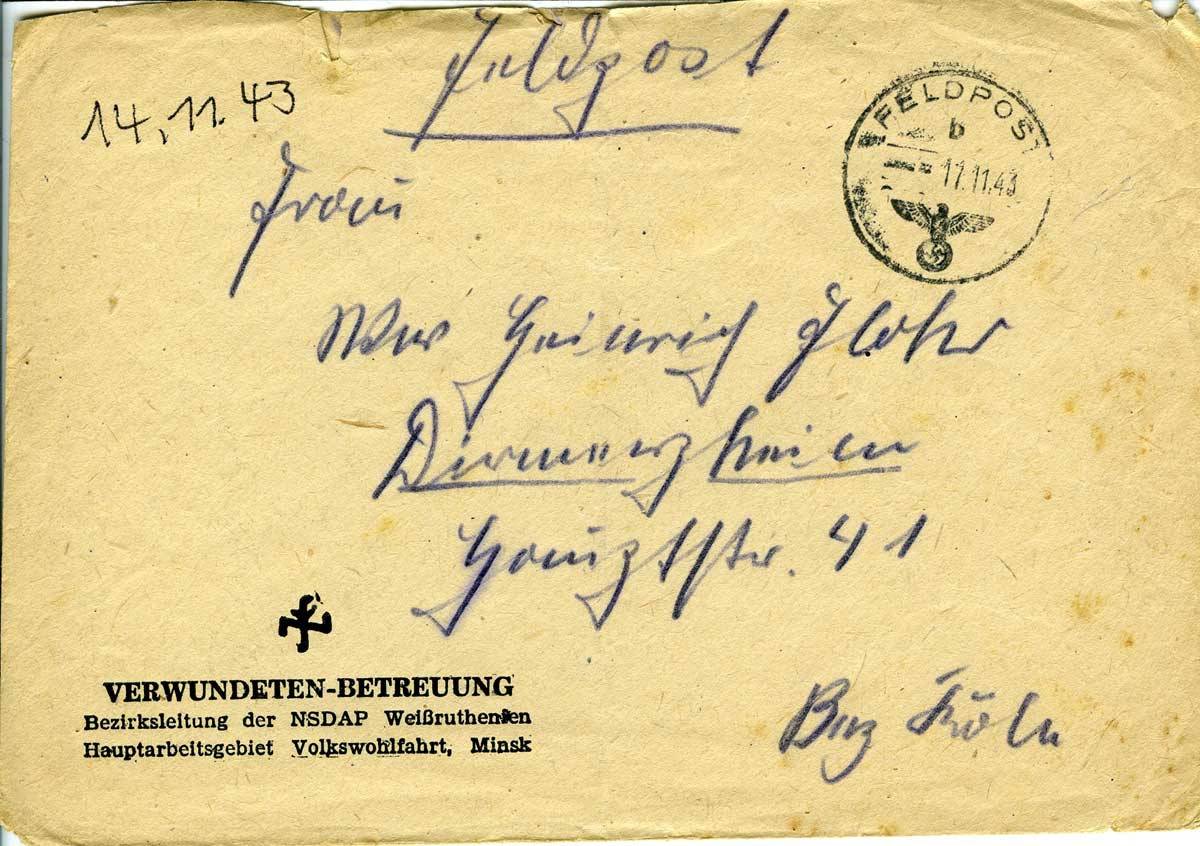 Feldpost
14.11.43
FELDPOST
b
17.11.43
Frau
Ww Heinrich Flohr
Dirmerzheim
Hauptstr. 41
Bez Köln
VERWUNDETEN-BETREUUNG
Bezirksleitung der NSDAP Weißruthenien
Hauptarbeitsgebiet Volkswohlfahrt, Minsk